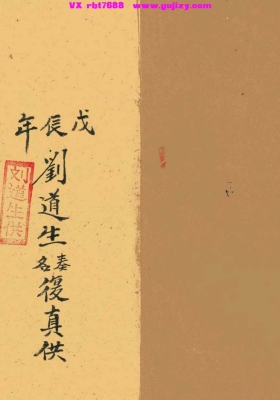 VX rbt7688 www.gujizy.com
戊辰年
劉道生奏名復真供
刘道生供